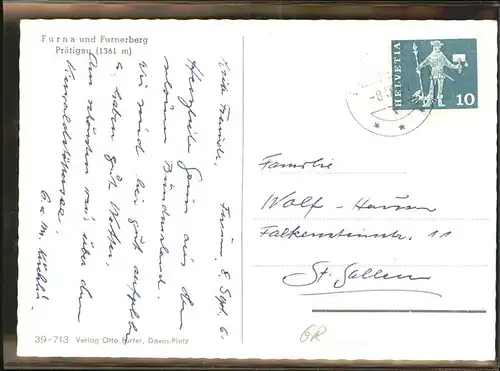 Furna und Furnerberg
Prätigau (1361 m)
Furna, 8. Sept. 6.
Herzliche Grüsse aus dem
schönen Bündnerland.
Wir sind hier gut aufgehoben
u. haben gut Wetter.
Am schönsten war's über den
HELVETIA
10
Familie
Wolf - Hausen
Falkensteinstr. 11
St. Gallen
GR
39-713 Verlag Otto Furter, Davos-Platz